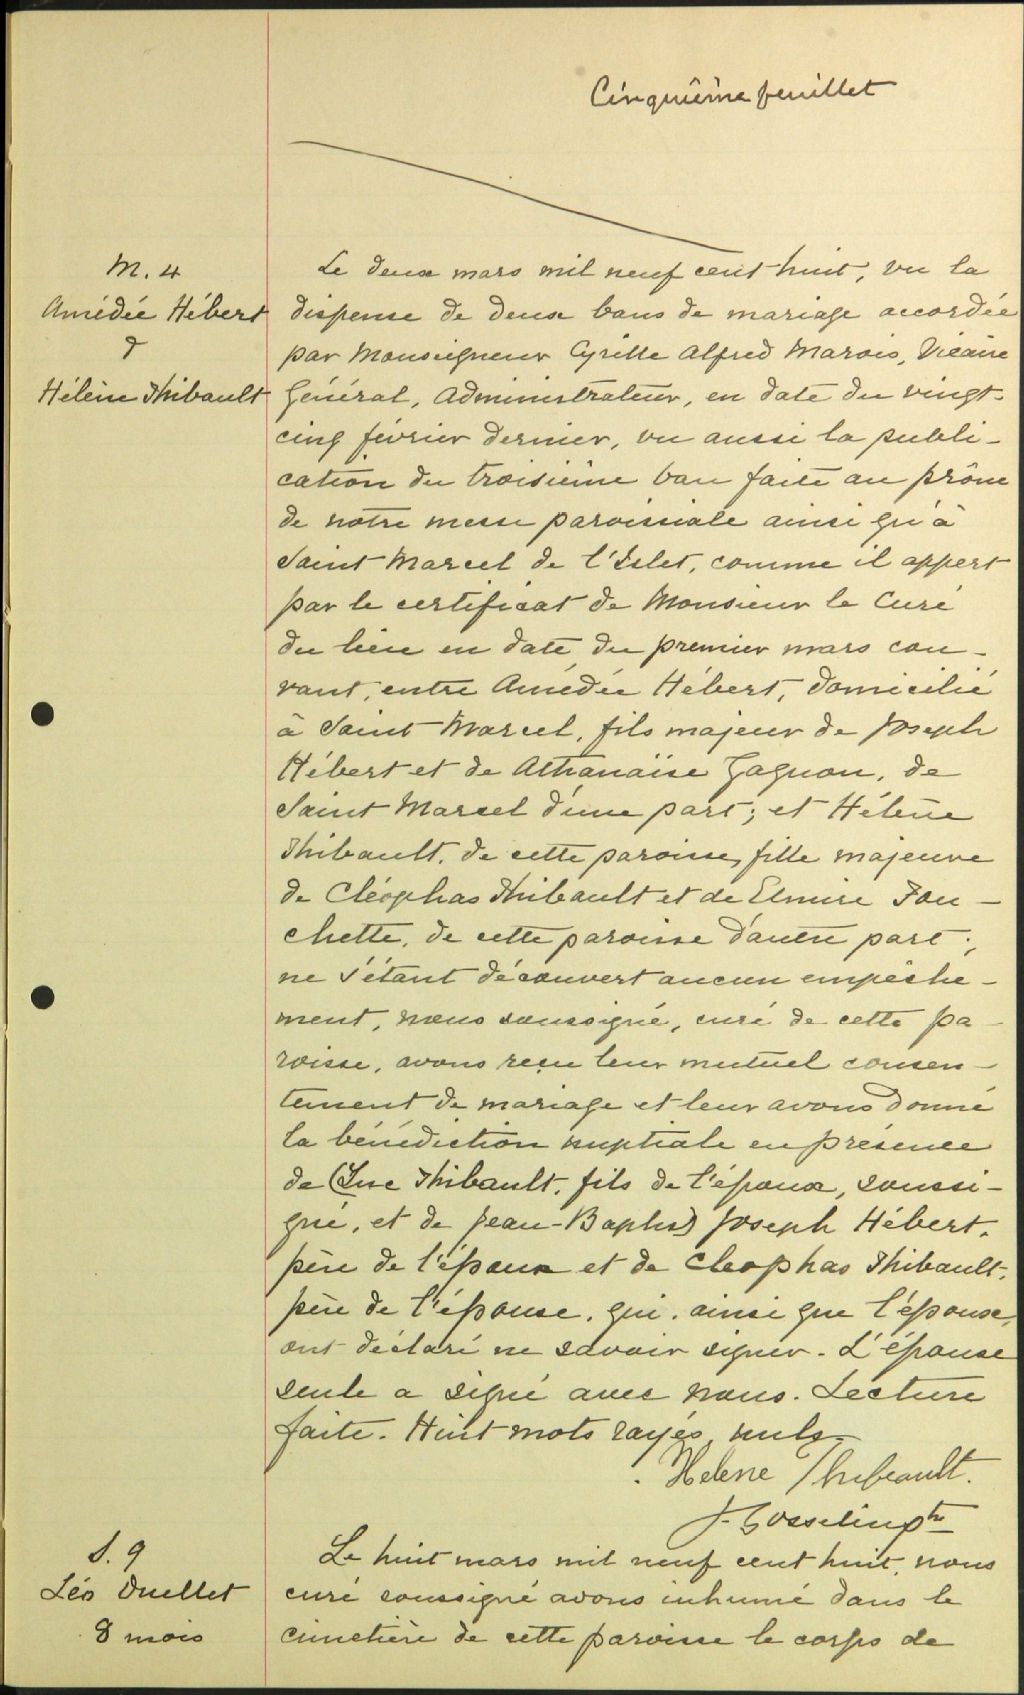 Cinquième feuillet
M. 4
Amédée Hébert
&
Hélène Thibault
Le deux mars mil neuf cent huit, vu la
dispense de deux bans de mariage accordée
par Monseigneur Cyrille Alfred Marois, Vicaire
Général, Administrateur, en date du vingt-
cinq février dernier, vu aussi la publi-
cation du troisième ban faite au prône
de notre messe paroissiale ainsi qu'à
Saint Marcel de l'Islet, comme il appert
par le certificat de Monsieur le Curé
du lieu en date du premier mars cou-
rant, entre Amédée Hébert, domicilié
à Saint Marcel, fils majeur de Joseph
Hébert et de Athanaïse Gagnon, de
Saint Marcel d'une part; et Hélène
Thibault, de cette paroisse, fille majeure
de Cléophas Thibault et de Elmire Fou-
chette, de cette paroisse d'autre part;
ne s'étant découvert aucun empêche-
ment, nous soussigné, curé de cette pa-
roisse, avons reçu leur mutuel consen-
tement de mariage et leur avons donné
la bénédiction nuptiale en présence
de (Luc Thibault, fils de l'époux, soussi-
gné, et de Jean-Baptis) Joseph Hébert,
père de l'époux et de Cleophas Thibault,
père de l'épouse, qui, ainsi que l'épouse,
ont déclaré ne savoir signer. L'épouse
seule a signé avec nous. Lecture
faite. Huit mots rayés, nuls.
Helene Thibeault.
J. Gosselin ptre
S. 9
Léo Ouellet
8 mois
Le huit mars mil neuf cent huit, nous
curé soussigné avons inhumé dans le
cimetière de cette paroisse le corps de